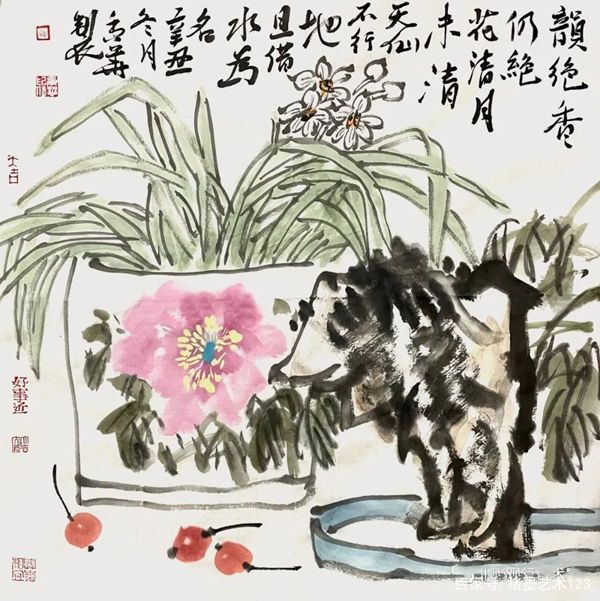 韻絕香
仍絕
花清月
未清
天仙
不行
地
且借
水為
名
辛丑
冬月
華
製
大吉
好事近
百家号/墨艺术123